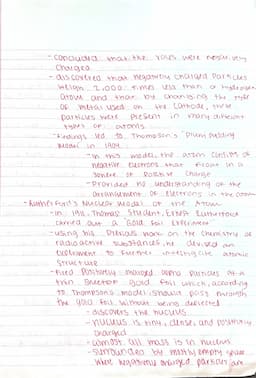 - concluded that the rays were negatively
charged
- discovered that negatively charged particles
weigh 2,000 times less than a hydrogen
atom and that by changing the type
of metal used on the cathode, these
particles were present in many different
types of atoms
- Findings led to Thompson's Plum Pudding
Model in 1904
- In this model, the atom consists of
negative electrons that float in a
sphere of positive charge
- Provided no understanding of the
arrangement of electrons in the atom
- Rutherford's Nuclear Model of the Atom
- In 1911, Thomas' student, Ernest Rutherford
carried out a Gold Foil Experiment
- using his previous work on the chemistry of
radioactive substances, he devised an
experiment to further investigate atomic
structure
- Fired positively charged alpha particles at a
thin sheet of gold foil which, according
to Thompson's model, should pass through
the gold foil without being deflected
- discovers the nucleus
- nucleus is tiny, dense, and positively
charged
- almost all mass is in nucleus
- surrounded by mostly empty space
where negatively charged particles are